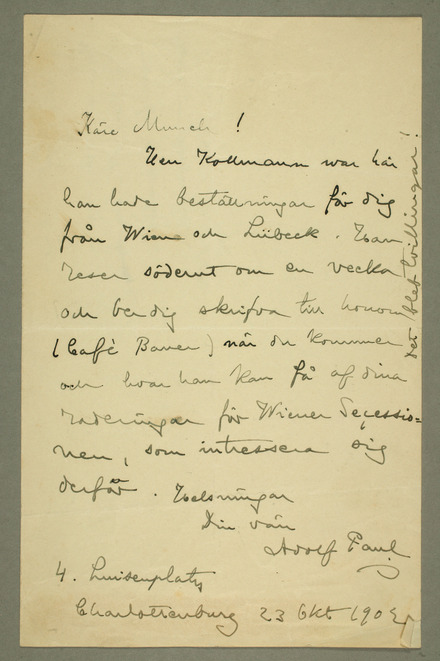 Käre Munch!
Herr Kollmann war här
han hade beställningar för dig
från Wien och Lübeck. Han
reser söderut om en vecka
och ber dig skrifva till honom
(Café Bauer) når du kommer
och hvar han kan få af dina
raderingar för Wiener Seçessio=
nen, som intressera sig
derför. Helsningar
Din vän
Adolf Paul
4. Luisenplatz
Charlottenburg 23 Okt 190
det blef tvillingar!